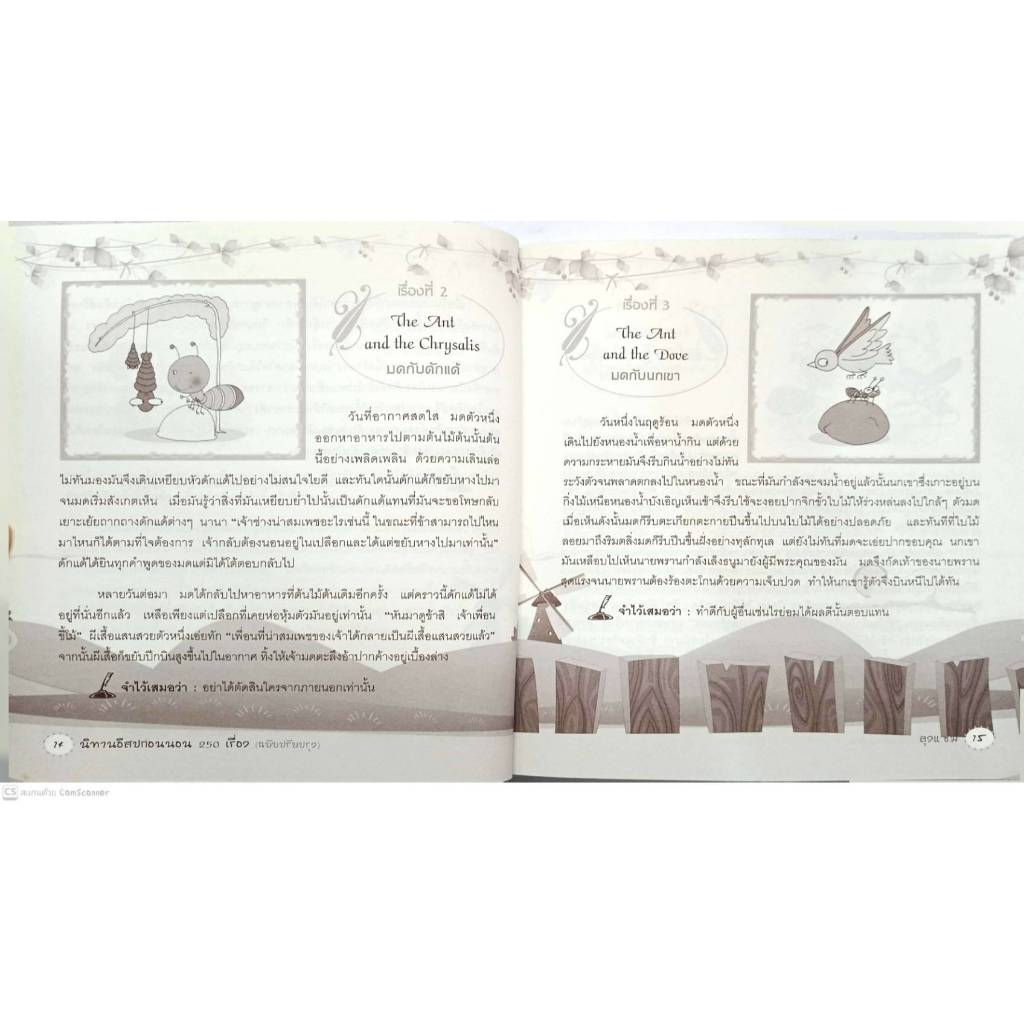 เรื่องที่ 2
The Ant
and the Chrysalis
มดกับดักแด้
วันที่อากาศสดใส มดตัวหนึ่ง
ออกหาอาหารไปตามต้นไม้ต้นนั้นต้น
นี้อย่างเพลิดเพลิน ด้วยความเลินเล่อ
ไม่ทันมองมันจึงเดินเหยียบหัวดักแด้ไปอย่างไม่สนใจไยดี และทันใดนั้นดักแด้ก็ขยับหางไปมา
จนมดเริ่มสังเกตเห็น เมื่อมันรู้ว่าสิ่งที่มันเหยียบย่ำไปนั้นเป็นดักแด้แทนที่มันจะขอโทษกลับ
เยาะเย้ยถากถางดักแด้ต่างๆ นานา “เจ้าช่างน่าสมเพชอะไรเช่นนี้ ในขณะที่ข้าสามารถไปไหน
มาไหนก็ได้ตามที่ใจต้องการ เจ้ากลับต้องนอนอยู่ในเปลือกและได้แต่ขยับหางไปมาเท่านั้น”
ดักแด้ได้ยินทุกคำพูดของมดแต่มิได้โต้ตอบกลับไป
หลายวันต่อมา มดได้กลับไปหาอาหารที่ต้นไม้ต้นเดิมอีกครั้ง แต่คราวนี้ดักแด้ไม่ได้
อยู่ที่นั่นอีกแล้ว เหลือเพียงแต่เปลือกที่เคยห่อหุ้มตัวมันอยู่เท่านั้น “หันมาดูข้าสิ เจ้าเพื่อน
ขี้โม้” ผีเสื้อแสนสวยตัวหนึ่งเอ่ยทัก “เพื่อนที่น่าสมเพชของเจ้าได้กลายเป็นผีเสื้อแสนสวยแล้ว”
จากนั้นผีเสื้อก็ขยับปีกบินสูงขึ้นไปในอากาศ ทิ้งให้เจ้ามดตะลึงอ้าปากค้างอยู่เบื้องล่าง
จำไว้เสมอว่า : อย่าได้ตัดสินใครจากภายนอกเท่านั้น
14 นิทานอีสปก่อนนอน 250 เรื่อง (ฉบับปรับปรุง)
เรื่องที่ 3
The Ant
and the Dove
มดกับนกเขา
วันหนึ่งในฤดูร้อน มดตัวหนึ่ง
เดินไปยังหนองน้ำเพื่อหาน้ำกิน แต่ด้วย
ความกระหายมันจึงรีบกินน้ำอย่างไม่ทัน
ระวังตัวจนพลาดตกลงไปในหนองน้ำ ขณะที่มันกำลังจะจมน้ำอยู่แล้วนั้นนกเขาซึ่งเกาะอยู่บน
กิ่งไม้เหนือหนองน้ำบังเอิญเห็นเข้าจึงรีบใช้จะงอยปากจิกขั้วใบไม้ให้ร่วงหล่นลงไปใกล้ๆ ตัวมด
เมื่อเห็นดังนั้นมดก็รีบตะเกียกตะกายปีนขึ้นไปบนใบไม้ได้อย่างปลอดภัย และทันทีที่ใบไม้
ลอยมาถึงริมตลิ่งมดก็รีบปีนขึ้นฝั่งอย่างทุลักทุเล แต่ยังไม่ทันที่มดจะเอ่ยปากขอบคุณ นกเขา
มันเหลือบไปเห็นนายพรานกำลังเล็งธนูมายังผู้มีพระคุณของมัน มดจึงกัดเท้าของนายพราน
สุดแรงจนนายพรานต้องร้องตะโกนด้วยความเจ็บปวด ทำให้นกเขารู้ตัวจึงบินหนีไปได้ทัน
จำไว้เสมอว่า : ทำดีกับผู้อื่นเช่นไรย่อมได้ผลดีนั้นตอบแทน
15
CS สแกนด้วย CamScanner